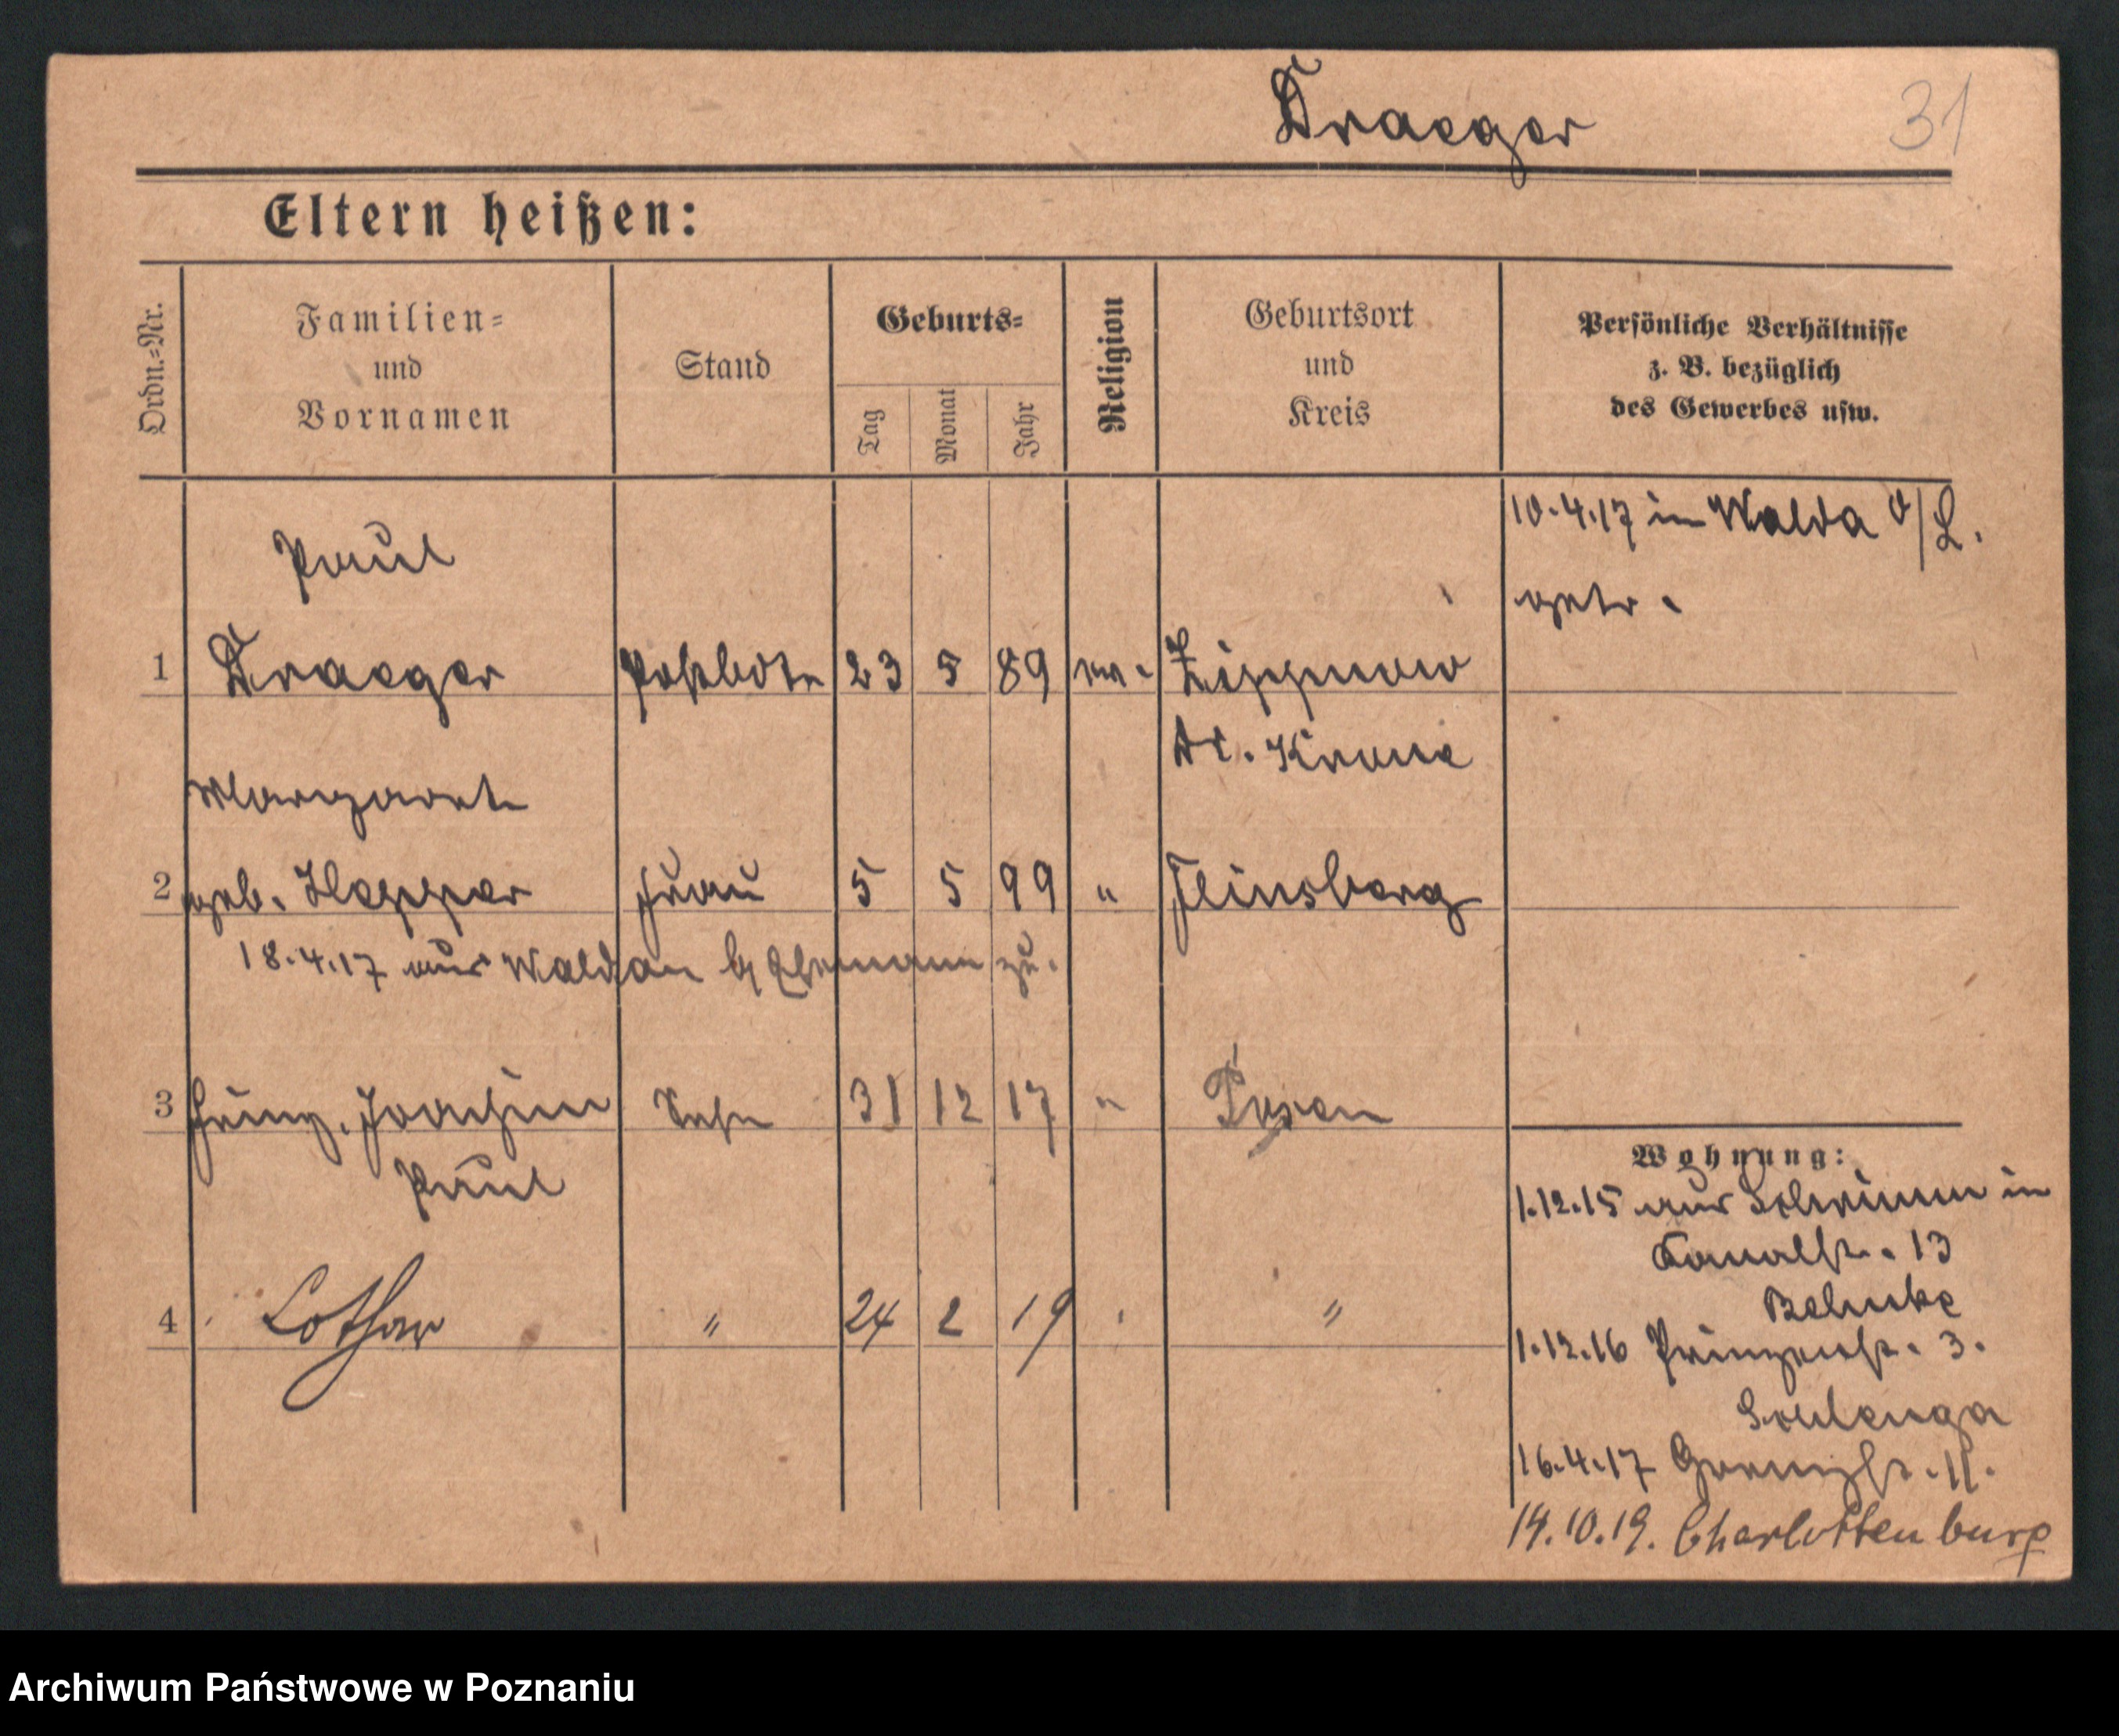 Draeger
31
Eltern heißen:
Ordn.=Nr.
Familien=
und
Vornamen
Stand
Geburts=
Tag
Monat
Jahr
Religion
Geburtsort
und
Kreis
Persönliche Verhältnisse
z. B. bezüglich
des Gewerbes usw.
10.4.17 in Walda O/L.
getr.
Paul
1 Draeger Postbote 23 5 89 ev. Zippnow
Dt. Krone
Margarete
2 geb. Frau 5 5 99 " Flinsberg
18.4.17 aus Waldau Ehemann zu.
3 Heinz, Joachim Sohn 31 12 17 " Posen
Paul
4 Lothar " 24 2 19 "
Wohnung:
1.12.15 aus Schrimm in
Kanalstr. 13
Behnke
1.12.16 Prinzenstr. 3.
16.4.17 Grenzstr. 11.
14.10.19. Charlottenburg
Archiwum Państwowe w Poznaniu